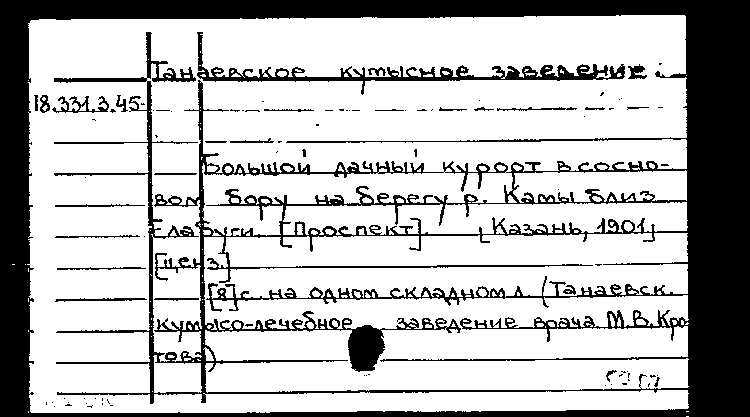 Танаевское кумысное заведение.
18.331.3.45
Большой дачный курорт в сосно-
вом бору на берегу р. Камы близ
Елабуги. [Проспект]. [Казань, 1901]
[ценз.]
[8]с. на одном складном л. (Танаевск.
кумысо-лечебное заведение врача М.В. Кро-
това).